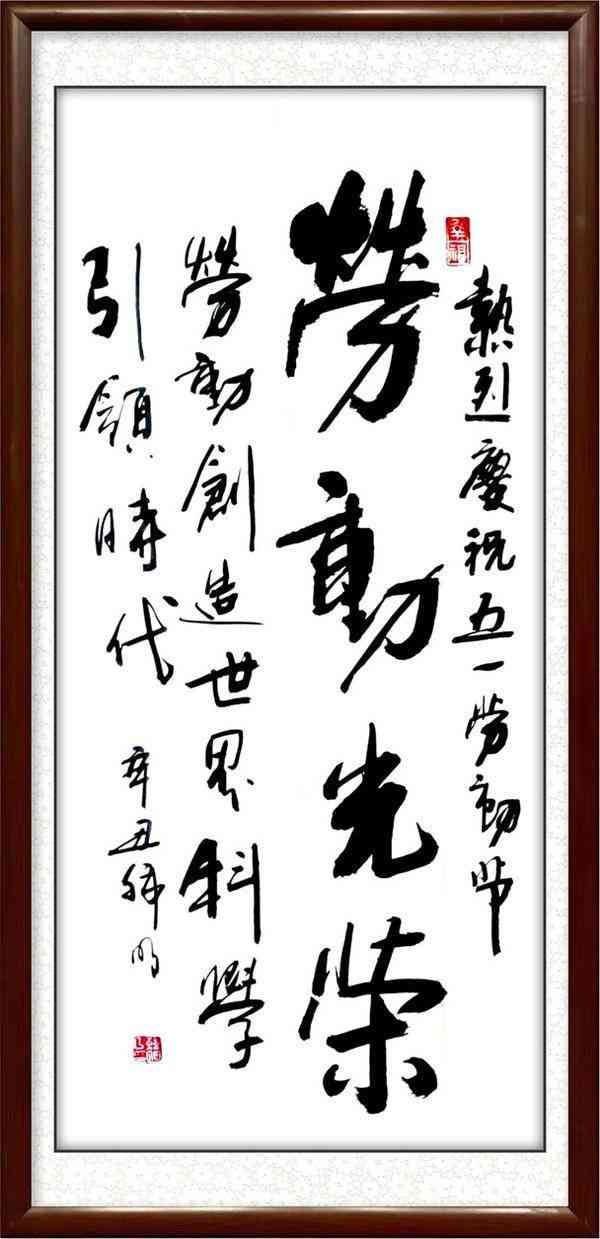 熱烈慶祝五一劳動节
勞動光榮
勞動創造世界科學
引領時代
辛丑祥明